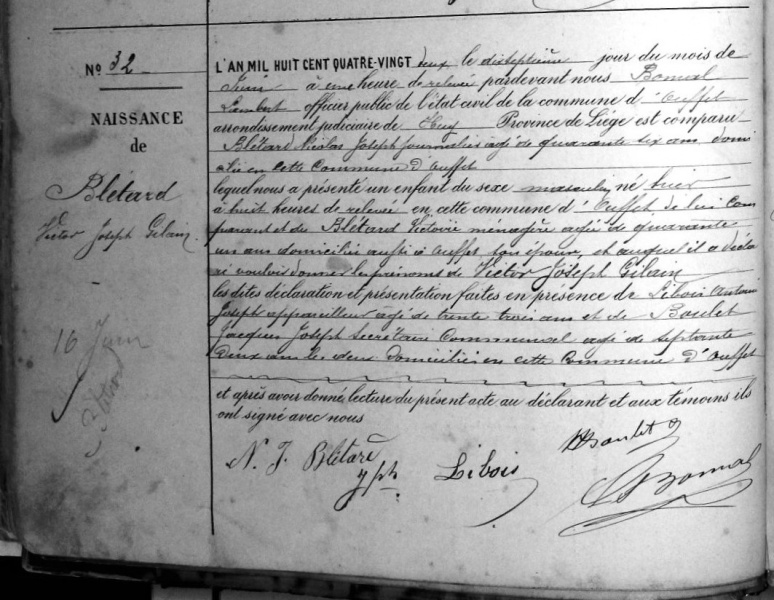 No 32
NAISSANCE
de
Blétard
Victor Joseph Gilain
16 Juin
L'AN MIL HUIT CENT QUATRE-VINGT deux le dixseptième jour du mois de
Juin à une heure de relevée pardevant nous Bonnal
Lambert officier public de l'état civil de la commune d'Ouffet
arrondissement judiciaire de Huy Province de Liége est comparu
Blétard Nicolas Joseph journalier agé de quarante six ans domi
cilié en cette Commune d'Ouffet
lequel nous a présenté un enfant du sexe masculin, né hier
à huit heures de relevée en cette commune d'Ouffet, de lui Com
parant et de Blétard Victoire ménagère agée de quarante
un ans domiciliée aussi à Ouffet son épouse, et auquel il a décla
ré vouloir donner les prénoms de Victor Joseph Gilain
les dites déclaration et présentation faites en présence de Libois Antoine
Joseph appareilleur agé de trente trois ans et de Boulet
Jacques Joseph Secrétaire Communal agé de septante
deux ans les deux domiciliés en cette Commune d'Ouffet
et après avoir donné lecture du présent acte au déclarant et aux témoins ils
ont signé avec nous
N. J. Blétard
Libois
Boulet
L Bonnal